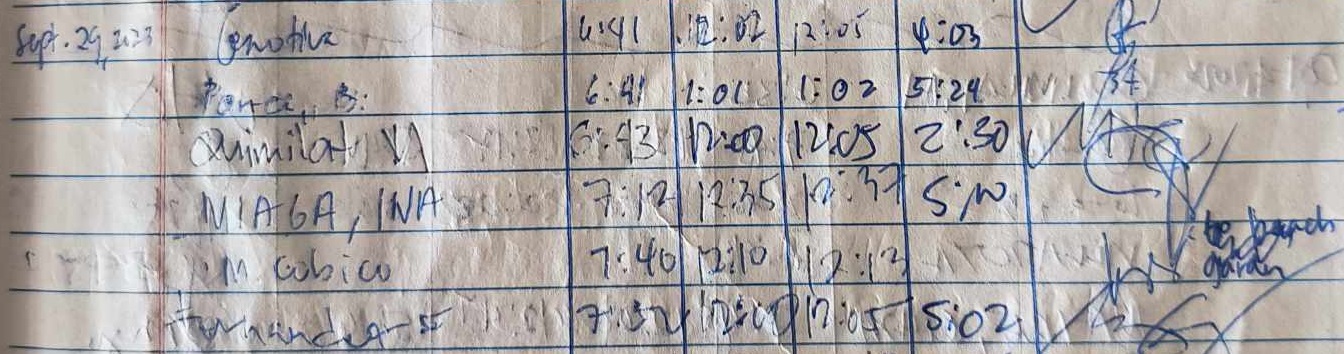 Sept. 29, 2023 Genotiva 6:41 12:02 12:05 4:03
Ponce, B. 6:41 1:01 1:02 5:29
Quimilat, V 6:43 12:00 12:05 2:30
NIAGA, INA 7:12 12:35 12:37 5:10
M. Cobico 7:40 12:10 12:12 to beach
garden
Fernandez 7:32 12:00 12:05 5:02